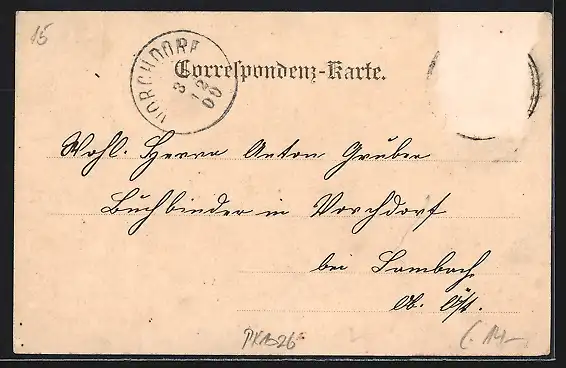 15
VORCHDORF
3 12 00
Correspondenz-Karte.
Wohl. Herrn Anton Gruber
Buchbinder in Vorchdorf
bei Lambach
Ob. Öst.
PK1526
14-